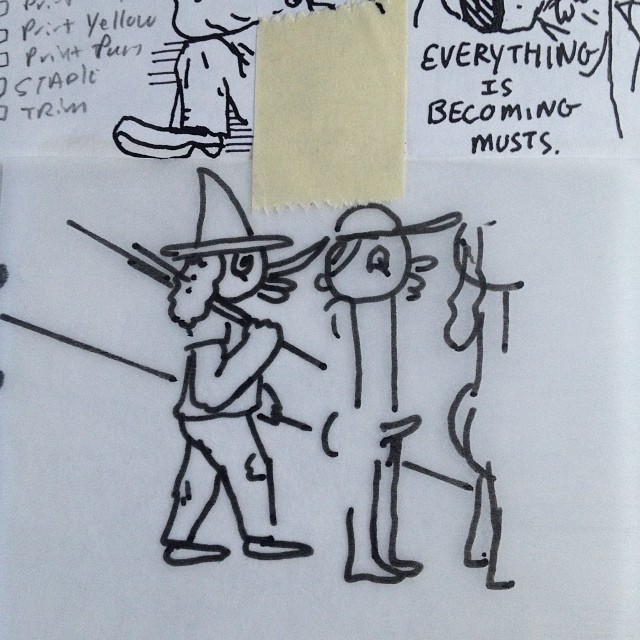 Print Yellow
Print Purs
STAPLE
TRIM
EVERYTHING
IS
BECOMING
MUSTS.